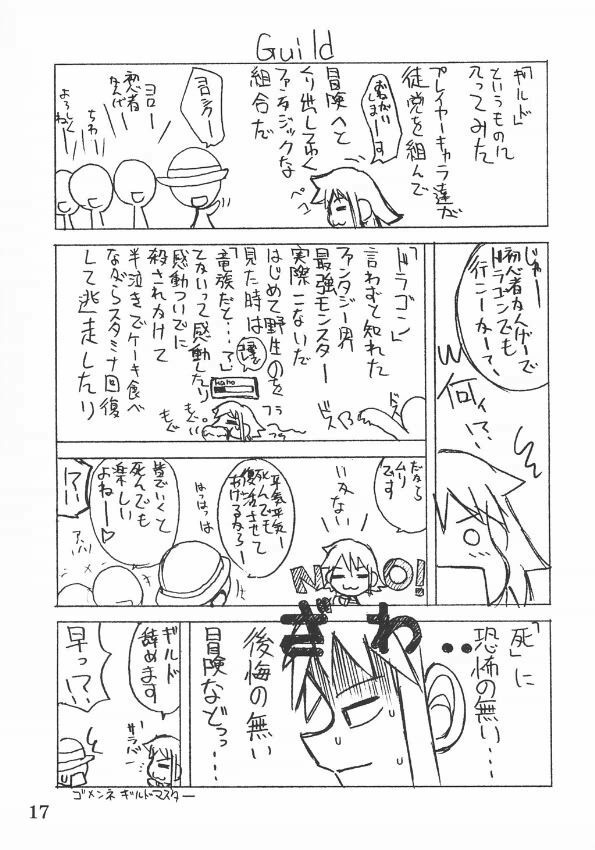 Guild
「ギルド」
というものに
入ってみた
プレイヤーキャラ達が
徒党を組んで
冒険へと
くり出してゆく
ファンタジックな
組合だ
おねがい
しまーーす
ペコ
ヨロシクー
ヨロー
初心者
なんだー
ちわー
よろしく
ね
じゃー
初心者なんげーで
ドラゴンでも
行こーかー？
何ィ！？
「ドラゴン」
言わずと知れた
ファンタジー界
最強モンスター
実際こないだ
はじめて野生のを
見た時は
「竜族だと…！」
てないって感動したり
感動ついでに
殺されかけて
半泣きでケーキ食べ
ながらスタミナ回復
して逃走したり
もぐ
もぐ
フラ
フラ
ドス
ドス
だから
ムリ
です
いえない
NO!
平気平気ー
死んでも
復活させて
あげるからー
はっはっは
皆でいくと
死んでも
楽しい
よねー♡
アハハ
！？
「死」に
恐怖の無い…
ぎゎ‥
後悔の無い
冒険などっ…
ギルド
辞めます
早っ！？
サラバー
ゴメンネ ギルドマスター
17